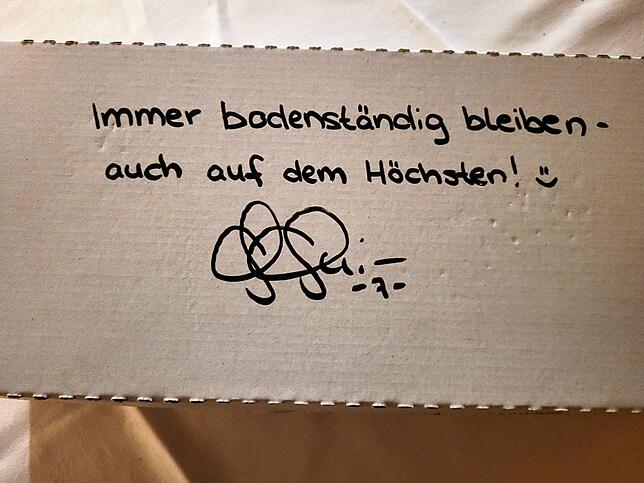 Immer bodenständig bleiben -
auch auf dem Höchsten! :)
-7-